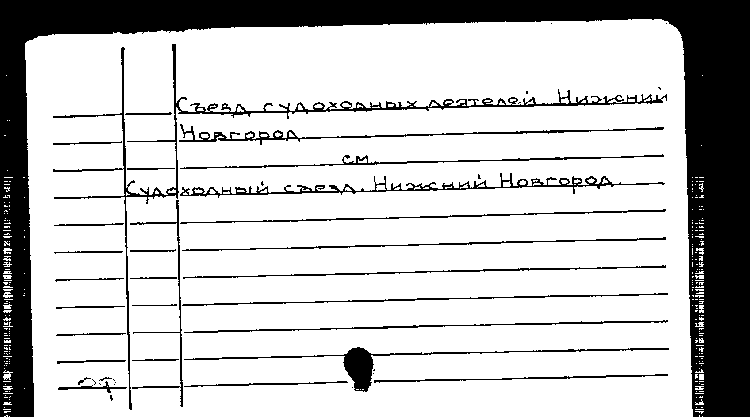 Съезд судоходных деятелей. Нижний
Новгород
см.
Судоходный съезд. Нижний Новгород.